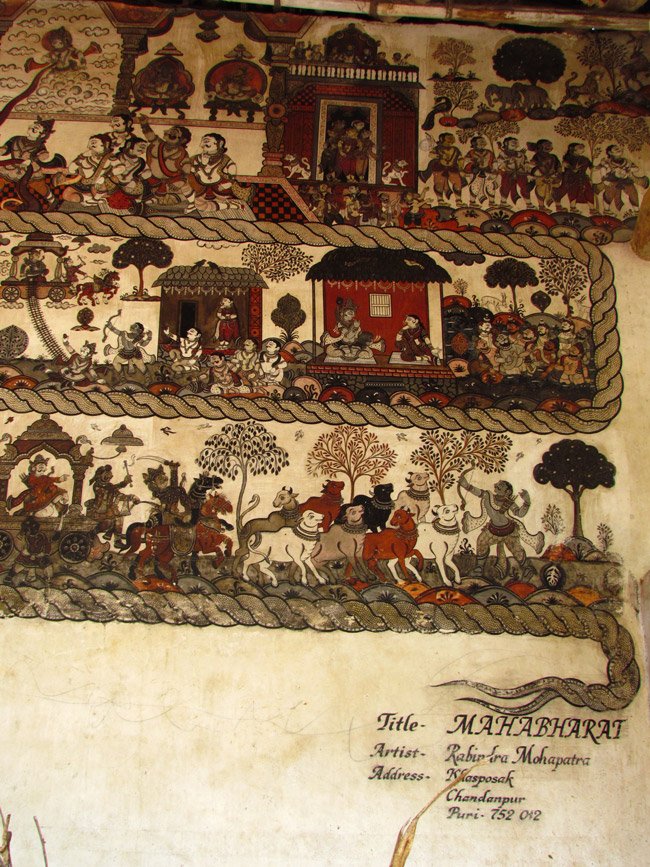 Title - MAHABHARAT
Artist - Rabindra Mohapatra
Address - Khasposak
Chandanpur
Puri - 752 012